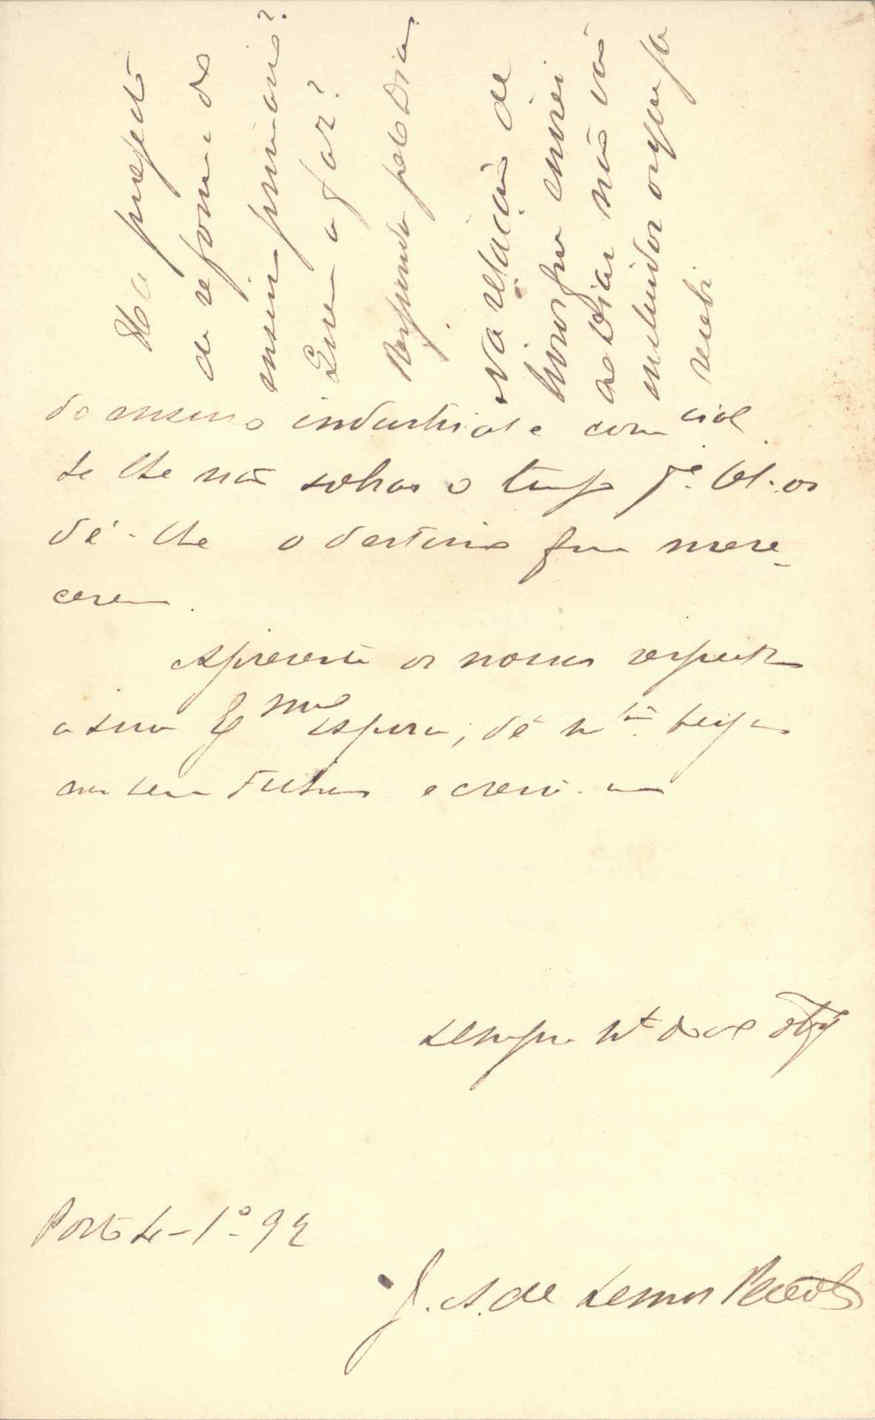 Ha projecto
de reforma do
ensino primario?
Quem a faz?
Responda pelo Dia.
Na relação de
livros que enviei
ao Dia não vão
incluidos os que ja
recebi
do ensino industrial e com cial
Se lhe não sobrar o tempo p.ª os
dê-lhe o destino que mere-
cerem.
Apresente os nossos respeitos
a sua Ex ma espoza; dê m.tos beijos
aos seus e creia-me
Sempre m.to seu obg
Porto 4-1º-92
J. A. de Lemos